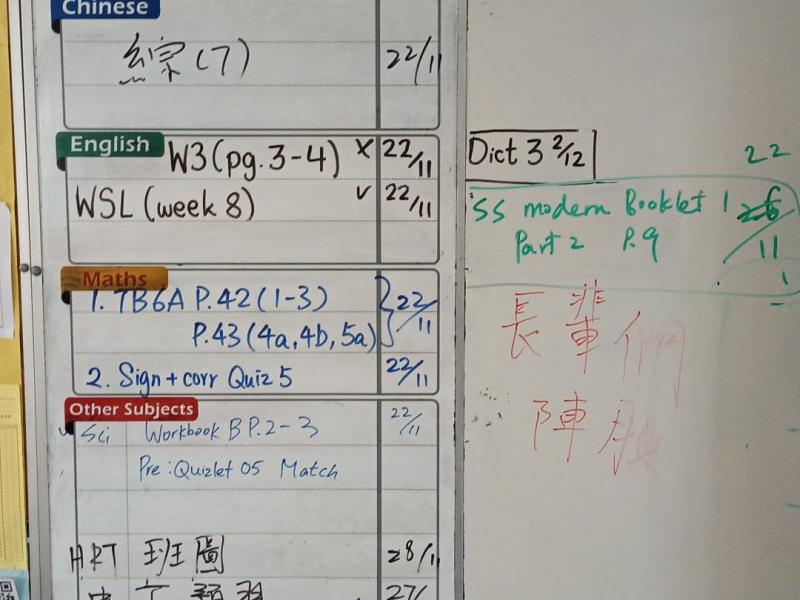 Chinese
綜(7) 22/11
English
W3(pg.3-4) x 22/11
WSL (week 8) v 22/11
Maths
1. TB6A P.42(1-3)
P.43(4a,4b,5a) } 22/11
2. Sign+corr Quiz 5 22/11
Other Subjects
Sci Workbook B P.2-3 22/11
Pre:Quizlet 05 Match
HRT 班圖 28/11
中文預習 27/
Dict 3 2/12
22
SS modern Booklet 1
Part 2 P.9 /11
長輩們
陣